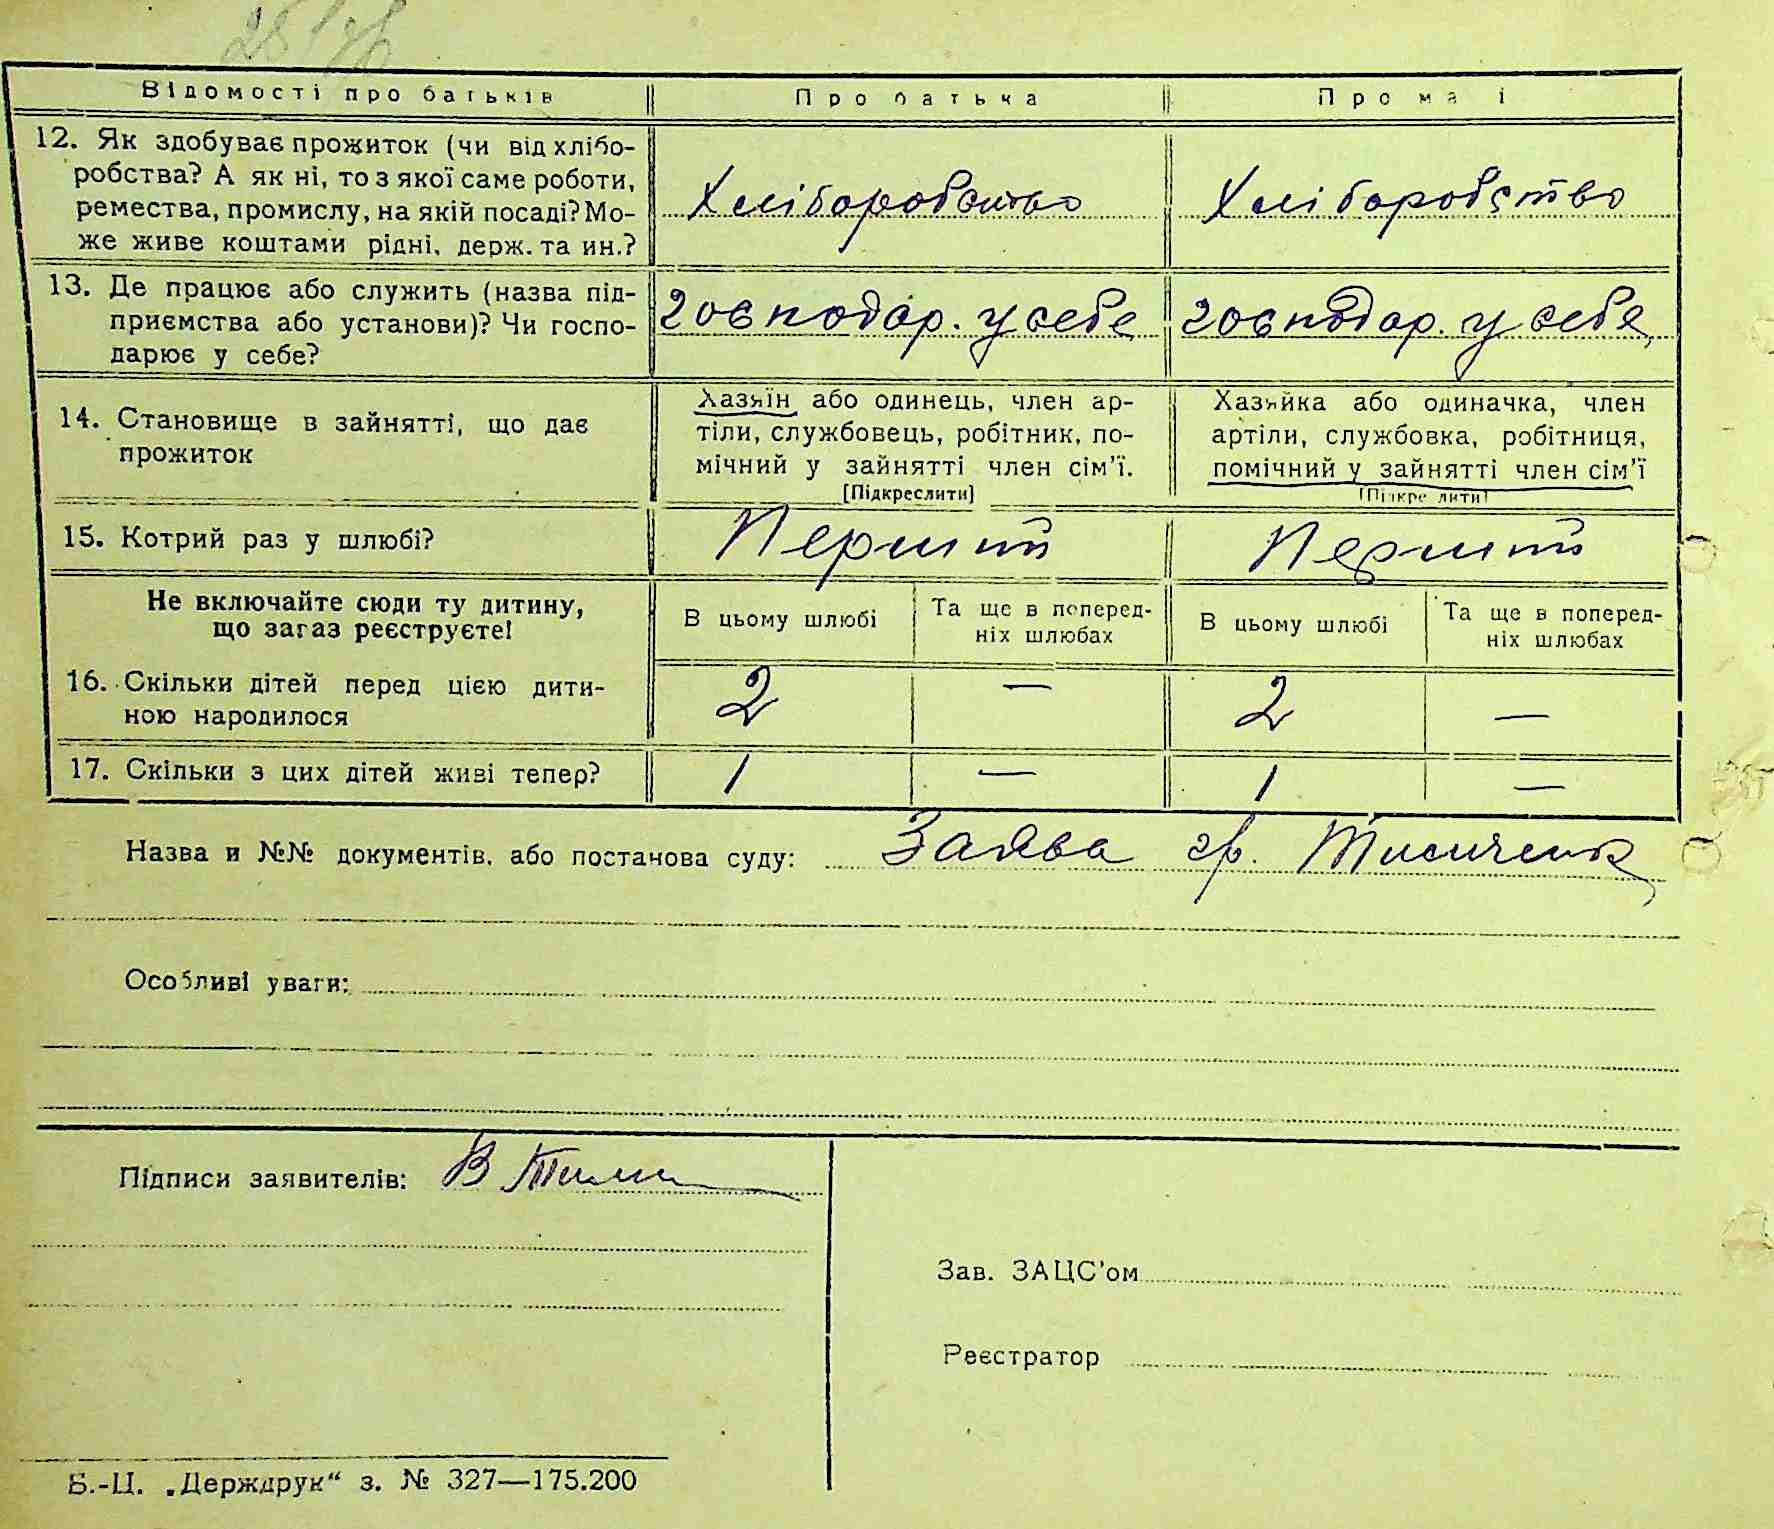 Відомості про батьків Про батька Про ма і
12. Як здобуває прожиток (чи від хлібо-
робства? А як ні, то з якої саме роботи,
ремества, промислу, на якій посаді? Мо-
же живе коштами рідні, держ. та ин.?
Хліборобство Хліборобство
13. Де працює або служить (назва під-
приємства або установи)? Чи госпо-
дарює у себе?
господар. у себе господар. у себе
14. Становище в зайнятті, що дає
прожиток
Хазяїн або одинець, член ар-
тіли, службовець, робітник, по-
мічний у зайнятті член сім'ї.
[Підкреслити]
Хазяйка або одиначка, член
артіли, службовка, робітниця,
помічний у зайнятті член сім'ї
[Підкре лити]
15. Котрий раз у шлюбі? Перший Перший
Не включайте сюди ту дитину,
що загаз реєструєте!
В цьому шлюбі
Та ще в поперед-
ніх шлюбах
В цьому шлюбі
Та ще в поперед-
ніх шлюбах
16. Скільки дітей перед цією дити-
ною народилося
2 — 2 —
17. Скільки з цих дітей живі тепер? 1 — 1 —
Назва и №№ документів, або постанова суду: Заява гр.
Особливі уваги:
Підписи заявителів: В
Зав. ЗАЦС'ом
Реєстратор
Б.-Ц. „Держдрук“ з. № 327—175.200